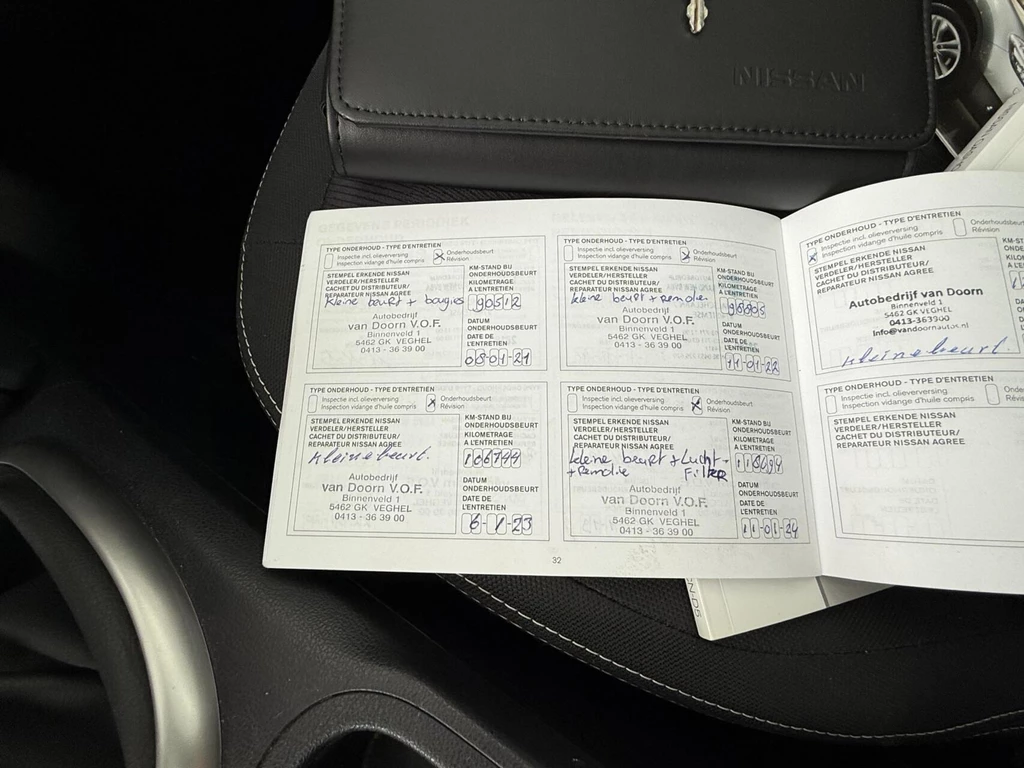 NISSAN
TYPE ONDERHOUD - TYPE D'ENTRETIEN
Inspectie incl. olieverversing
Inspection vidange d'huile compris
Onderhoudsbeurt
Révision
STEMPEL ERKENDE NISSAN
VERDELER/HERSTELLER
CACHET DU DISTRIBUTEUR/
REPARATEUR NISSAN AGREE
kleine beurt + bougies
Autobedrijf
van Doorn V.O.F.
Binnenveld 1
5462 GK VEGHEL
0413 - 36 39 00
KM-STAND BIJ
ONDERHOUDSBEURT
KILOMETRAGE
A L'ENTRETIEN
90512
DATUM
ONDERHOUDSBEURT
DATE DE
L'ENTRETIEN
08-01-21
TYPE ONDERHOUD - TYPE D'ENTRETIEN
Inspectie incl. olieverversing
Inspection vidange d'huile compris
Onderhoudsbeurt
Révision
STEMPEL ERKENDE NISSAN
VERDELER/HERSTELLER
CACHET DU DISTRIBUTEUR/
REPARATEUR NISSAN AGREE
kleine beurt + remolie
Autobedrijf
van Doorn V.O.F.
Binnenveld 1
5462 GK VEGHEL
0413 - 36 39 00
KM-STAND BIJ
ONDERHOUDSBEURT
KILOMETRAGE
A L'ENTRETIEN
DATUM
ONDERHOUDSBEURT
DATE DE
L'ENTRETIEN
11-01-22
TYPE ONDERHOUD - TYPE D'ENTRETIEN
Inspectie incl. olieverversing
Inspection vidange d'huile compris
Onderhoudsbeurt
Révision
STEMPEL ERKENDE NISSAN
VERDELER/HERSTELLER
CACHET DU DISTRIBUTEUR/
REPARATEUR NISSAN AGREE
kleine beurt.
Autobedrijf
van Doorn V.O.F.
Binnenveld 1
5462 GK VEGHEL
0413 - 36 39 00
KM-STAND BIJ
ONDERHOUDSBEURT
KILOMETRAGE
A L'ENTRETIEN
106744
DATUM
ONDERHOUDSBEURT
DATE DE
L'ENTRETIEN
6-1-23
TYPE ONDERHOUD - TYPE D'ENTRETIEN
Inspectie incl. olieverversing
Inspection vidange d'huile compris
Onderhoudsbeurt
Révision
STEMPEL ERKENDE NISSAN
VERDELER/HERSTELLER
CACHET DU DISTRIBUTEUR/
REPARATEUR NISSAN AGREE
kleine beurt + Lucht-
+ Remolie Filter
Autobedrijf
van Doorn V.O.F.
Binnenveld 1
5462 GK VEGHEL
0413 - 36 39 00
KM-STAND BIJ
ONDERHOUDSBEURT
KILOMETRAGE
A L'ENTRETIEN
DATUM
ONDERHOUDSBEURT
DATE DE
L'ENTRETIEN
11-01-24
32
TYPE ONDERHOUD - TYPE D'ENTRETIEN
Inspectie incl. olieverversing
Inspection vidange d'huile compris
Onderhoudsbeurt
Révision
STEMPEL ERKENDE NISSAN
VERDELER/HERSTELLER
CACHET DU DISTRIBUTEUR/
REPARATEUR NISSAN AGREE
Autobedrijf van Doorn
Binnenveld 1
5462 GK VEGHEL
0413-363900
Info@vandoornautos.nl
kleine beurt.
TYPE ONDERHOUD - TYPE D'ENTRETIEN
Inspectie incl. olieverversing
Inspection vidange d'huile compris
STEMPEL ERKENDE NISSAN
VERDELER/HERSTELLER
CACHET DU DISTRIBUTEUR/
REPARATEUR NISSAN AGREE